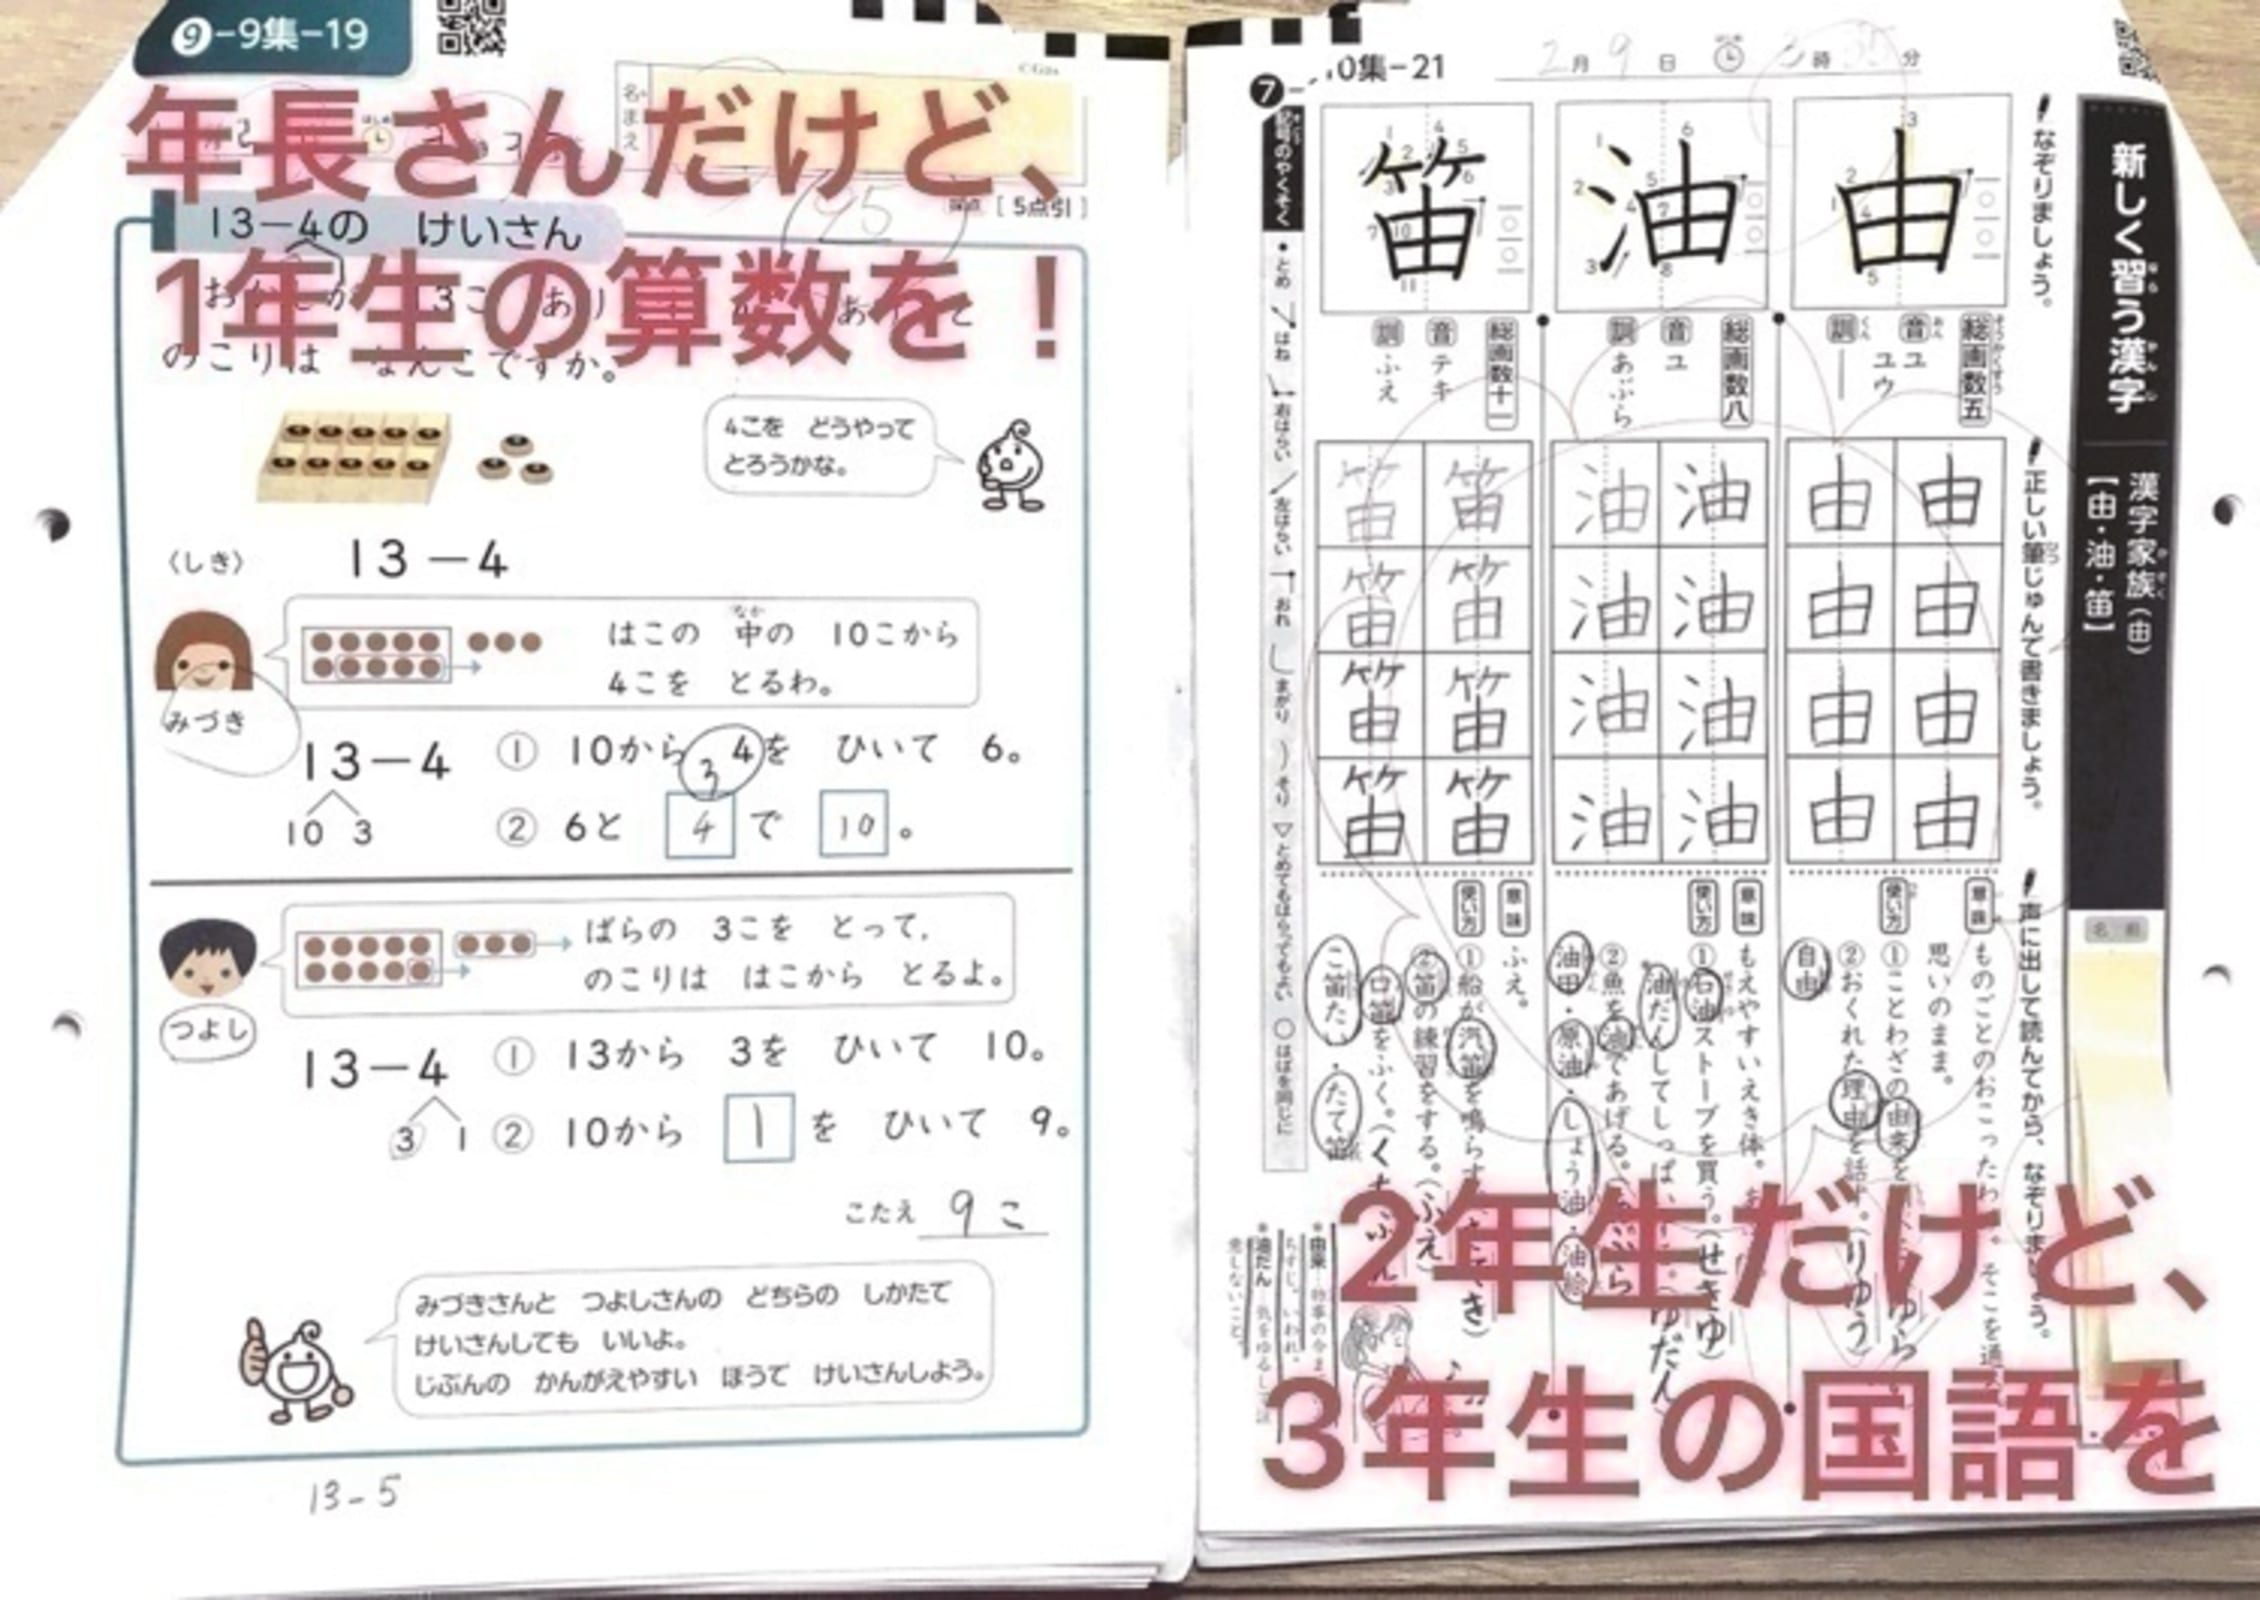 年長さんだけど、
1年生の算数を！
9-9集-19
なまえ
[5点引]
13-4の けいさん
のこりは なんこですか。
4こを どうやって
とろうかな。
〈しき〉 13-4
はこの 中の 10こから
4こを とるわ。
みづき
13-4
10 3
① 10から 4を ひいて 6。
3
② 6と 4 で 10 。
ばらの 3こを とって，
のこりは はこから とるよ。
つよし
13-4
3 1
① 13から 3を ひいて 10。
② 10から 1 を ひいて 9。
こたえ 9こ
みづきさんと つよしさんの どちらの しかたで
けいさんしても いいよ。
じぶんの かんがえやすい ほうで けいさんしよう。
13-5
2年生だけど、
3年生の国語を
0集-21
2月9日
時 分
新しく習う漢字
漢字家族（由）
【由・油・笛】
名前
なぞりましょう。
正しい筆じゅんで書きましょう。
声に出して読んでから、なぞりましょう。
由
総画数五
音 ユ ユウ
訓 ―
由 由
由 由
由 由
由 由
意味
ものごとのおこったわ
思いのまま。
使い方
①ことわざの由来を
②おくれた理由を話す。（りゆう）
自由
油
総画数八
音 ユ
訓 あぶら
油 油
油 油
油 油
油 油
意味
もえやすいえき体。
使い方
①石油ストーブを買う。（せきゆ）
油だんしてしっぱい
②魚を油であげる。
油田・原油・しょう油・油絵
笛
総画数十一
音 テキ
訓 ふえ
笛 笛
笛 笛
笛 笛
笛 笛
意味
ふえ。
使い方
①船が汽笛を鳴らす
②笛の練習をする。（ふえ）
口笛をふく。
こ笛たい・たて笛
記号のやくそく
・とめ はね 右はらい 左はらい おれ まがり そり ▽とめてもはらってもよい ○ほぼを同じに
＊由来
＊油だん 気をゆるして
意しないこと。